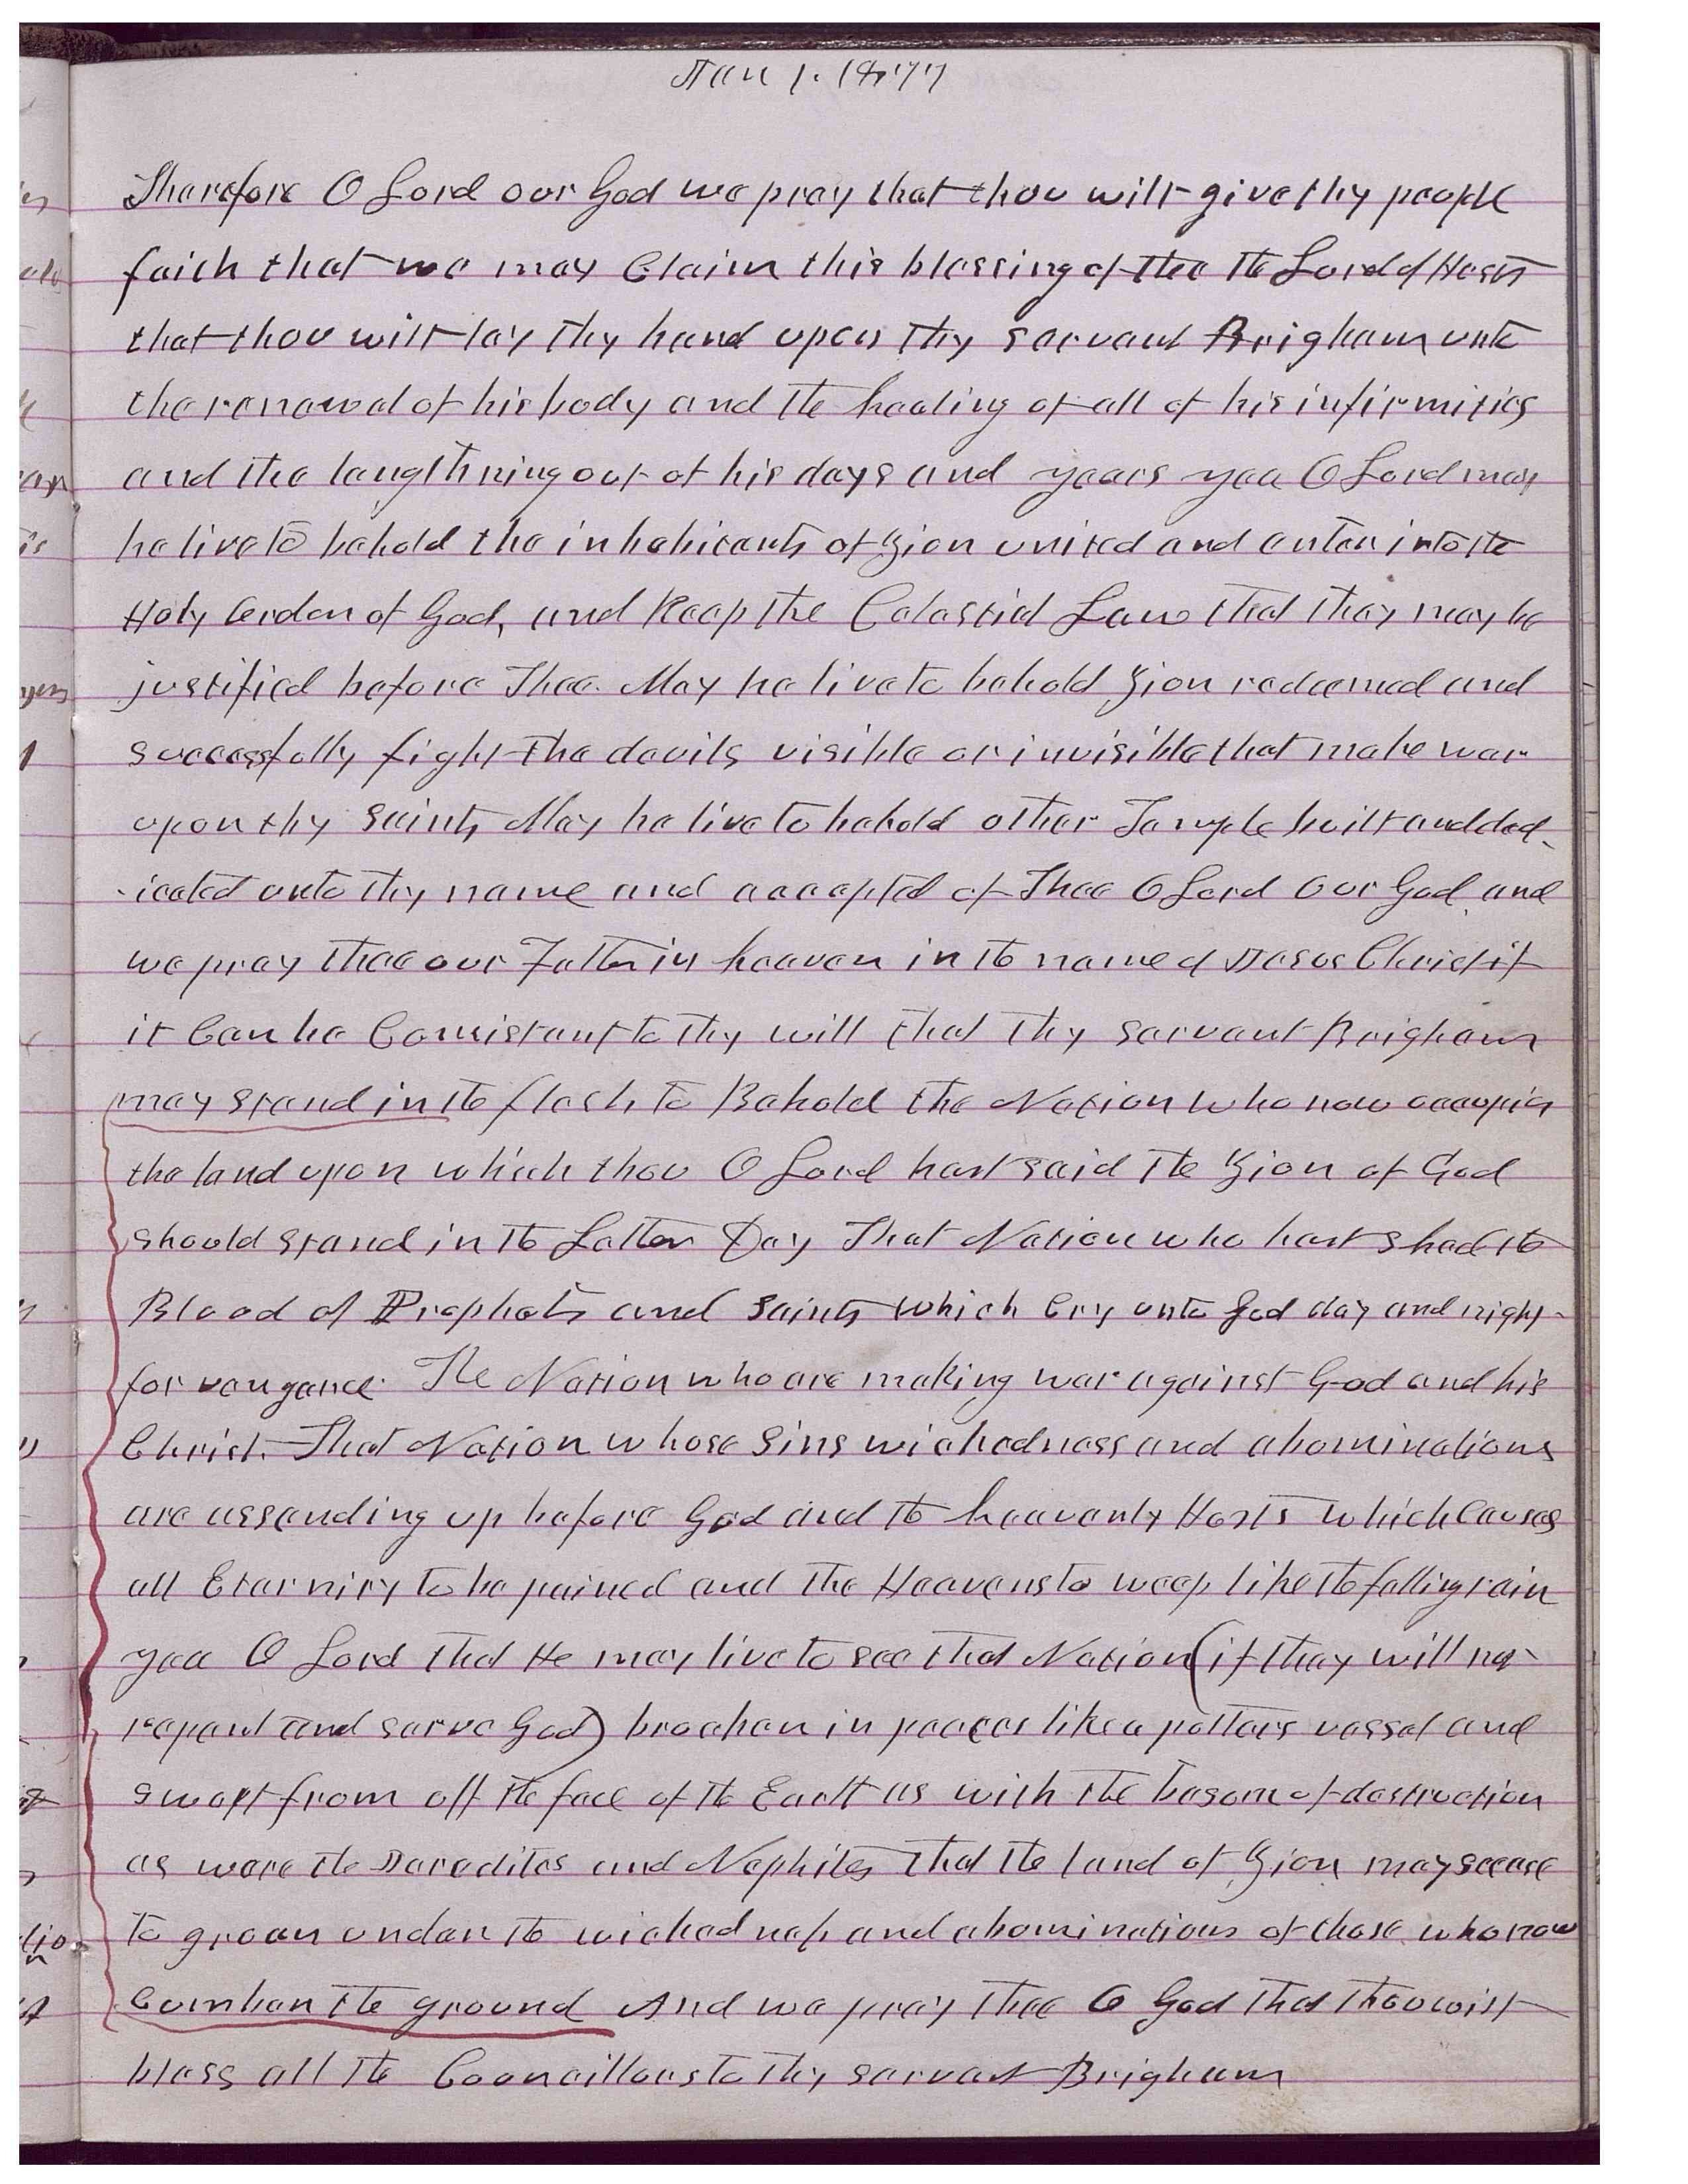 Jan 1. 1877
Therefore O Lord our God we pray that thou wilt give thy people
faith that we may Claim this blessing of thee the Lord of Hosts
that thou wilt lay thy hand upon thy servant Brigham unto
the renewal of his body and the healing of all of his infirmities
and the lengthning out of his days and years yea O Lord may
he live to behold the inhabitants of Zion united and enter into the
Holy Order of God, and Keep the Celestial Law that they may be
justified before Thee. May he live to behold Zion redeemed and
successfully fight the devils visible or invisible that make war
upon thy Saints May he live to behold other Temple built and ded-
-icated unto thy name and accepted of Thee O Lord our God, and
we pray thee our Father in heaven in the name of Jesus Christ if
it Can be Consistant to thy will that thy servant Brigham
may stand in the flesh to Behold the Nation who now occupies
the land upon which thou O Lord hast said the Zion of God
should stand in the Latter Day That Nation who hast shed the
Blood of Prophets and Saints which Cry unto God day and night
for vengance. The Nation who are making war against God and his
Christ. That Nation whose Sins wickedness and abominations
are assending up before God and the heavenly Hosts which Causes
all Eternity to be pained and the Heavens to weep like the falling rain
yea O Lord that He may live to see that Nation (if they will not
repent and serve God) broaken in peaces like a potters vessel and
swept from off the face of the Earth as with the besom of destruction
as were the Jaredites and Nephites that the land of Zion may seease
to groan under the wickedness and abominations of those who now
Cumber the ground And we pray thee O God that thou wilt
bless all the Councillors to thy servant Brigham